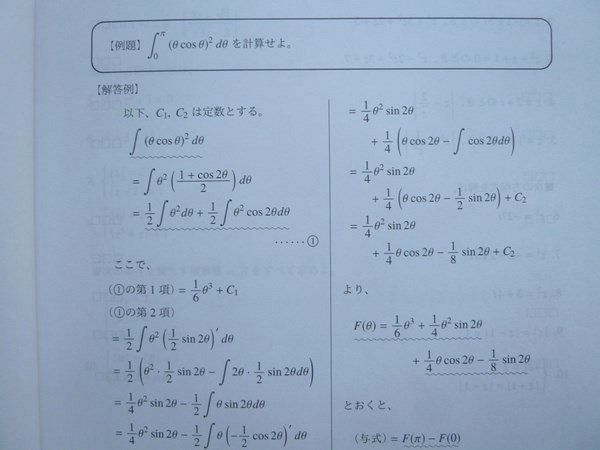 【例題】∫₀^π (θ cos θ)² dθ を計算せよ。
【解答例】
以下、C₁, C₂ は定数とする。
∫ (θ cos θ)² dθ
= ∫ θ² ( (1 + cos 2θ)/2 ) dθ
= 1/2 ∫ θ² dθ + 1/2 ∫ θ² cos 2θdθ
……①
ここで、
(①の第1項) = 1/6 θ³ + C₁
(①の第2項)
= 1/2 ∫ θ² ( 1/2 sin 2θ )′ dθ
= 1/2 ( θ² · 1/2 sin 2θ − ∫ 2θ · 1/2 sin 2θdθ )
= 1/4 θ² sin 2θ − 1/2 ∫ θ sin 2θdθ
= 1/4 θ² sin 2θ − 1/2 ∫ θ ( −1/2 cos 2θ )′ dθ
= 1/4 θ² sin 2θ
+ 1/4 ( θ cos 2θ − ∫ cos 2θdθ )
= 1/4 θ² sin 2θ
+ 1/4 ( θ cos 2θ − 1/2 sin 2θ ) + C₂
= 1/4 θ² sin 2θ
+ 1/4 θ cos 2θ − 1/8 sin 2θ + C₂
より、
F(θ) = 1/6 θ³ + 1/4 θ² sin 2θ
+ 1/4 θ cos 2θ − 1/8 sin 2θ
とおくと、
(与式) = F(π) − F(0)